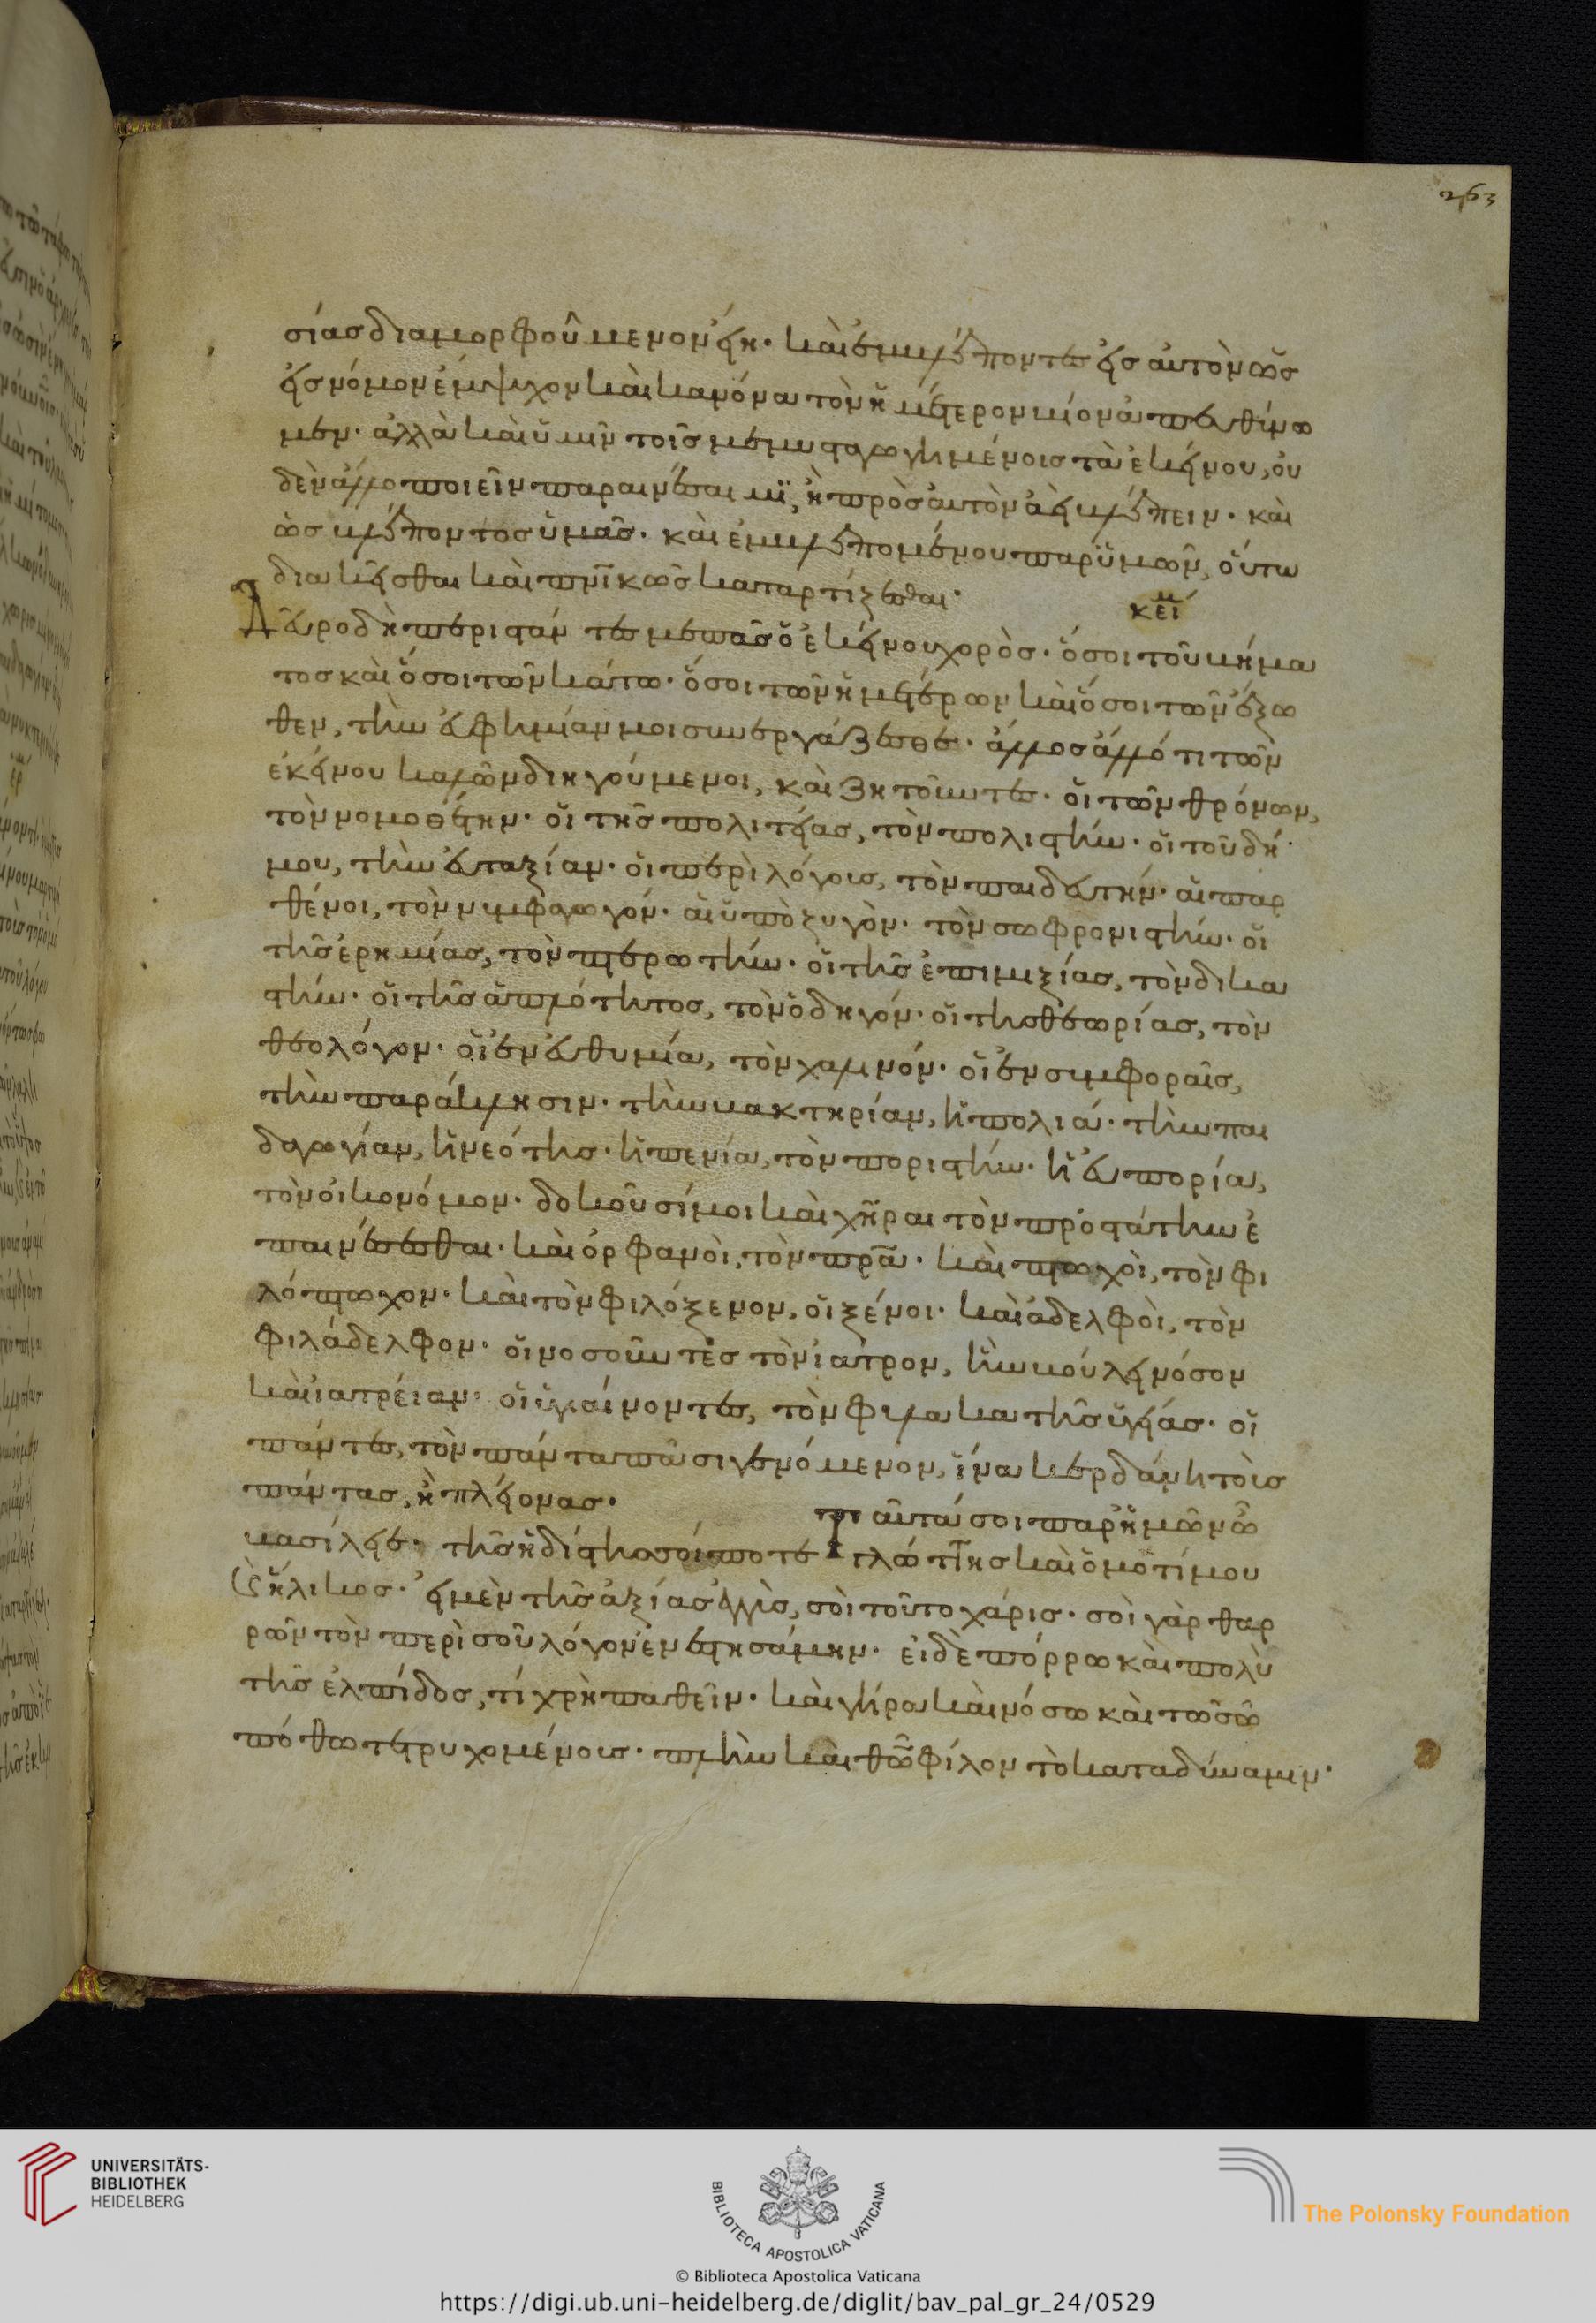 σίας διαμορφούμενον εἴη. καὶ ἐμβλέποντες εἰς αὐτὸν ὡς
εἰς νόμον ἔμψυχον καὶ κανόνα τὸν ἡμέτερον βίον ἀπευθύνω
μεν. ἀλλὰ καὶ ὑμῖν τοῖς μεμυσταγωγημένοις τὰ ἐκείνου, οὐ
δὲν ἄλλο ποιεῖν παραινέσαιμι, ἢ πρὸς αὐτὸν ἀεὶ βλέπειν. καὶ
ὡς βλέποντος ὑμᾶς. καὶ ἐμβλεπομένου παρ' ὑμῶν, οὕτω
διακεῖσθαι καὶ πνικῶς καταρτίζεσθαι.
κει
Δεῦρο δὴ περιστάντες με πᾶς ὁ ἐκείνου χορὸς. ὅσοι τοῦ βήμα
τος καὶ ὅσοι τῶν κάτω. ὅσοι τῶν ἡμετέρων καὶ ὅσοι τῶν ἔξω
θεν, τὴν εὐφημίαν μοι συνεργάζεσθε. ἄλλος ἄλλό τι τῶν
ἐκείνου καλῶν διηγούμενοι, καὶ ζητοῦντες. οἱ τῶν θρόνων,
τὸν νομοθέτην. οἱ τῆς πολιτείας, τὸν πολιστήν. οἱ τοῦ δή
μου, τὴν εὐταξίαν. οἱ περὶ λόγους, τὸν παιδευτήν. αἱ παρ
θένοι, τὸν νυμφαγωγόν. αἱ ὑπὸ ζυγὸν. τὸν σωφρονιστήν. οἱ
τῆς ἐρημίας, τὸν πτερωτήν. οἱ τῆς ἐπιμιξίας, τὸν δικα
στήν. οἱ τῆς ἁπλότητος, τὸν ὁδηγόν. οἱ τῆς θεωρίας, τὸν
θεολόγον. οἱ ἐν εὐθυμία, τὸν χαλινόν. οἱ ἐν συμφοραῖς,
τὴν παράκλησιν. τὴν βακτηρίαν, ἡ πολιά. τὴν παι
δαγωγίαν, ἡ νεότης. ἡ πενία, τὸν ποριστήν. ἡ εὐπορία,
τὸν οἰκονόμον. δοκοῦσί μοι καὶ χῆραι τὸν προστάτην ἐ
παινέσεσθαι. καὶ ὀρφανοὶ, τὸν πρα. καὶ πτωχοὶ, τὸν φι
λόπτωχον. καὶ τὸν φιλόξενον, οἱ ξένοι. καὶ ἀδελφοὶ, τὸν
φιλάδελφον. οἱ νοσοῦντες τὸν ἰατρον, ἣν βούλει νόσον
καὶ ἰατρείαν. οἱ ὑγιαίνοντες, τὸν φύλακα τῆς ὑγείας. οἱ
πάντες, τὸν πάντα πᾶσι γενόμενον, ἵνα κερδάνη τοὺς
πάντας, ἢ πλείονας.
ταῦτά σοι παρ' ἡμῶν ὦ
βασίλειε. τῆς ἡδίστης σοί ποτε γλώττης καὶ ὁμοτίμου
καὶ ἥλικος. εἰ μὲν τῆς ἀξίας ἐγγὺς, σοὶ τοῦτο χάρις. σοὶ γὰρ θαρ
ρῶν τὸν περὶ σοῦ λόγον ἐνεστησάμην. εἰ δὲ πόρρω καὶ πολὺ
τῆς ἐλπίδος, τί χρὴ παθεῖν. καὶ γήρα καὶ νόσω καὶ τῶ σῶ
πόθω τετρυχομένους. πλὴν καὶ θῶ φίλον τὸ κατα δύναμιν.
263
UNIVERSITÄTS-
BIBLIOTHEK
HEIDELBERG
BIBLIOTECA APOSTOLICA VATICANA
The Polonsky Foundation
© Biblioteca Apostolica Vaticana
https://digi.ub.uni-heidelberg.de/diglit/bav_pal_gr_24/0529